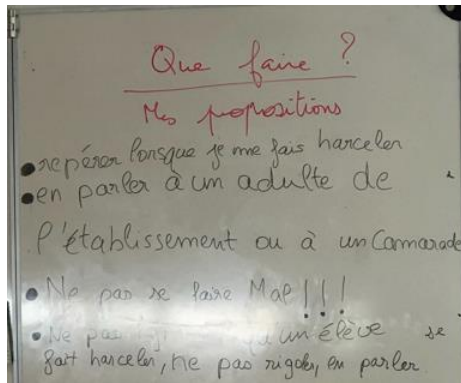 Que faire ?
Mes propositions
• repérer lorsque je me fais harceler
• en parler à un adulte de
l'établissement ou à un Camarade
• Ne pas se faire Mal !!!
• Ne pas qu'un élève se
fait harceler, ne pas rigoler, en parler.